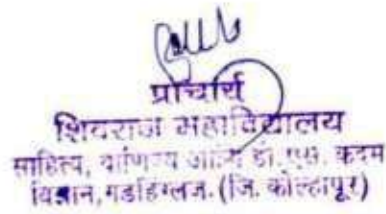 प्राचार्य
शिवराज महाविद्यालय
साहित्य, वाणिज्य आणि डॉ. एस. कदम
विज्ञान, गडहिंग्लज. (जि. कोल्हापूर)